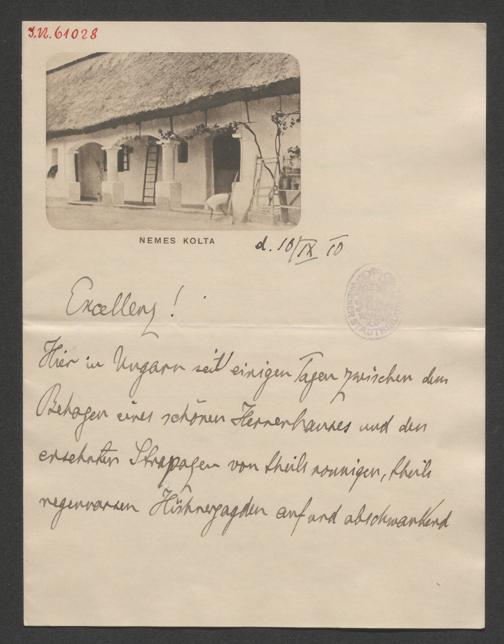 I.N. 61028
NEMES KOLTA
d. 10/IX 10
Excellenz!
Hier in Ungarn seit einigen Tagen zwischen dem
Behagen eines schönen Herrenhauses und den
ersehnten Strapazen von theils sonnigen, theils
regennassen Hühnerjagden auf und abschwankend